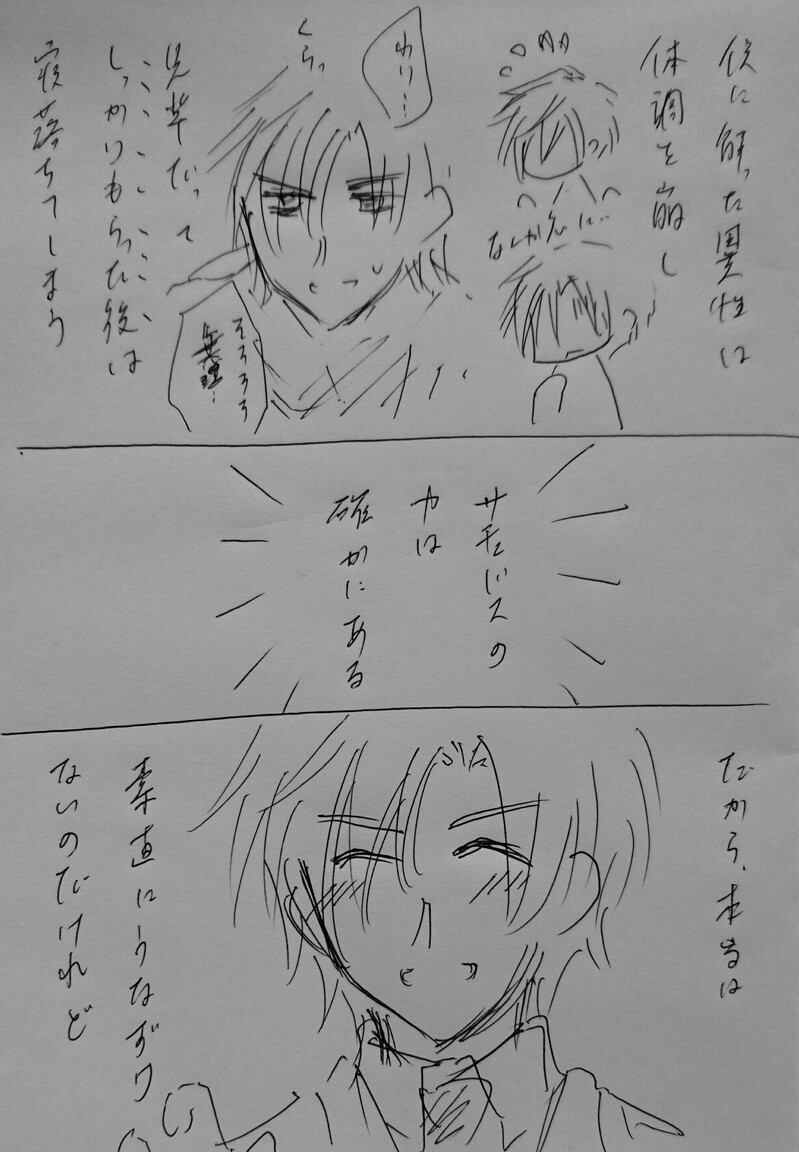 僕に触った異性は
体調を崩し
なんか急に…
わり…
くらっ
そろそろ
無理…
兄弟だって
しっかりもらった後は
寝落ちてしまう
サキュバスの
力は
確かにある
だから、本当は
素直にうなずけ
ないのだけれど